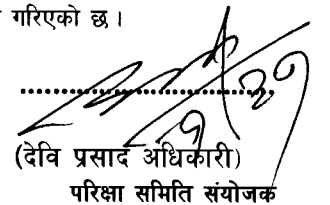 गरिएको छ।
(देवि प्रसाद अधिकारी)
परिक्षा समिति संयोजक